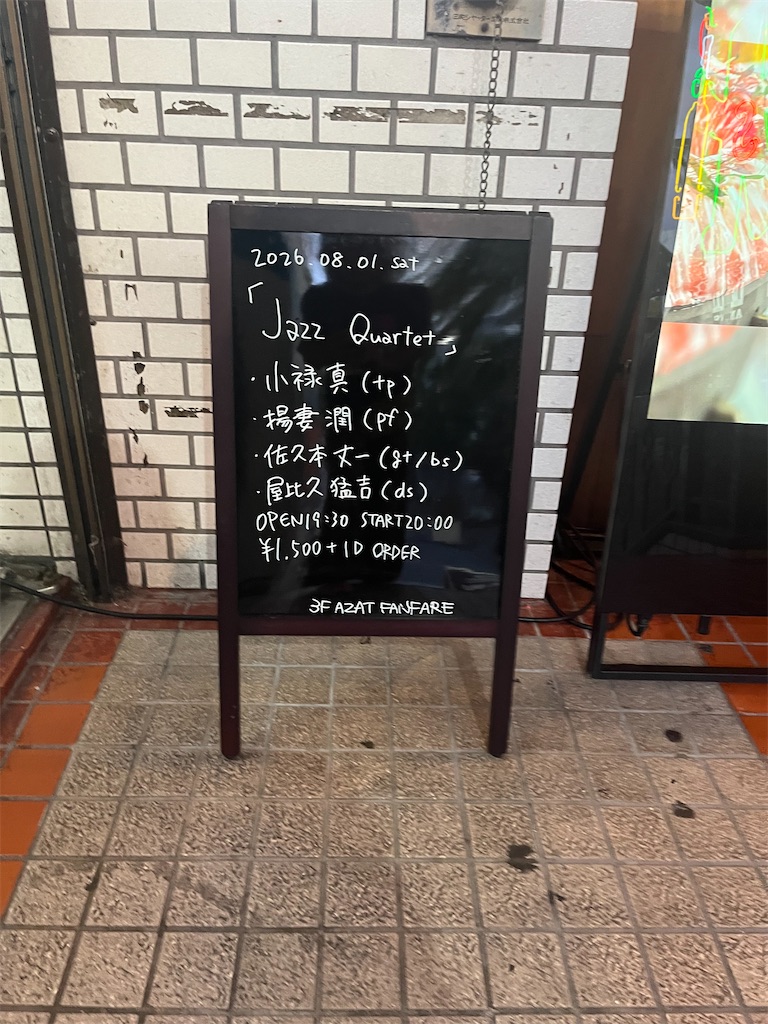 2026.08.01.sat
「Jazz Quartet」
・小禄真(tp)
・揚妻潤(pf)
・佐久本丈一(gt/bs)
・屋比久猛吉(ds)
OPEN19:30 START20:00
¥1.500+1D ORDER
3F AZAT FANFARE